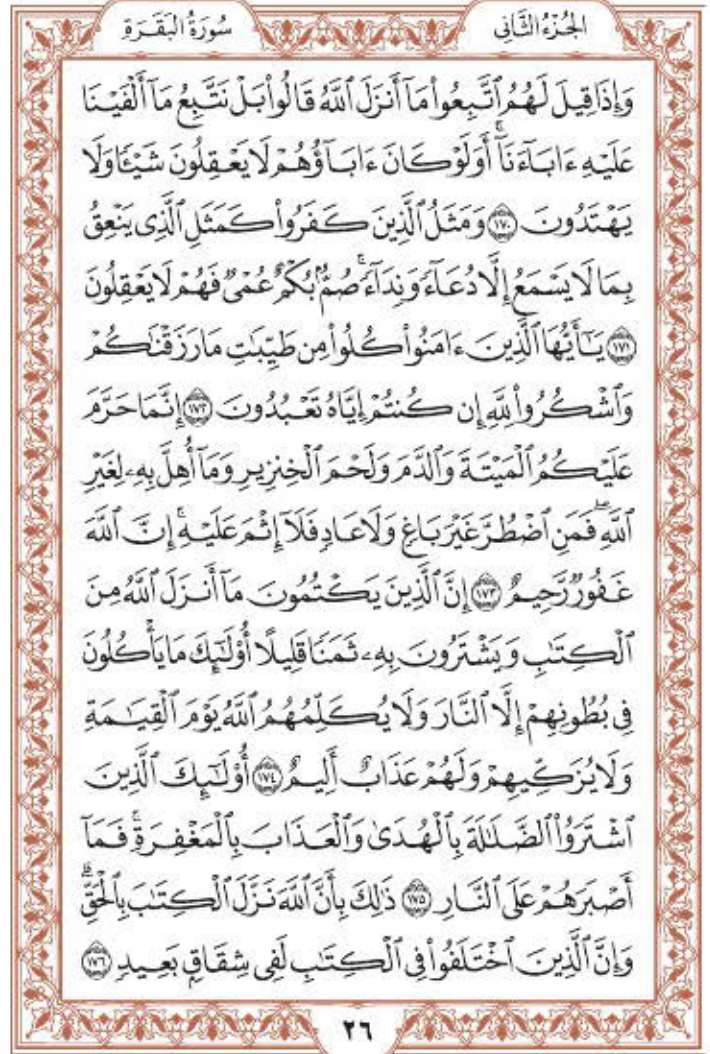 الجُزْءُ الثَّانِي سُورَةُ البَقَرَةِ
وَإِذَا قِيلَ لَهُمُ ٱتَّبِعُوا۟ مَآ أَنزَلَ ٱللَّهُ قَالُوا۟ بَلْ نَتَّبِعُ مَآ أَلْفَيْنَا
عَلَيْهِ ءَابَآءَنَآ ۚ أَوَلَوْ كَانَ ءَابَآؤُهُمْ لَا يَعْقِلُونَ شَيْـًٔا وَلَا
يَهْتَدُونَ ١٧٠ وَمَثَلُ ٱلَّذِينَ كَفَرُوا۟ كَمَثَلِ ٱلَّذِى يَنْعِقُ
بِمَا لَا يَسْمَعُ إِلَّا دُعَآءً وَنِدَآءً ۚ صُمٌّۢ بُكْمٌ عُمْىٌ فَهُمْ لَا يَعْقِلُونَ
١٧١ يَـٰٓأَيُّهَا ٱلَّذِينَ ءَامَنُوا۟ كُلُوا۟ مِن طَيِّبَـٰتِ مَا رَزَقْنَـٰكُمْ
وَٱشْكُرُوا۟ لِلَّهِ إِن كُنتُمْ إِيَّاهُ تَعْبُدُونَ ١٧٢ إِنَّمَا حَرَّمَ
عَلَيْكُمُ ٱلْمَيْتَةَ وَٱلدَّمَ وَلَحْمَ ٱلْخِنزِيرِ وَمَآ أُهِلَّ بِهِۦ لِغَيْرِ
ٱللَّهِ ۖ فَمَنِ ٱضْطُرَّ غَيْرَ بَاغٍ وَلَا عَادٍ فَلَآ إِثْمَ عَلَيْهِ ۚ إِنَّ ٱللَّهَ
غَفُورٌ رَّحِيمٌ ١٧٣ إِنَّ ٱلَّذِينَ يَكْتُمُونَ مَآ أَنزَلَ ٱللَّهُ مِنَ
ٱلْكِتَـٰبِ وَيَشْتَرُونَ بِهِۦ ثَمَنًا قَلِيلًا أُو۟لَـٰٓئِكَ مَا يَأْكُلُونَ
فِى بُطُونِهِمْ إِلَّا ٱلنَّارَ وَلَا يُكَلِّمُهُمُ ٱللَّهُ يَوْمَ ٱلْقِيَـٰمَةِ
وَلَا يُزَكِّيهِمْ وَلَهُمْ عَذَابٌ أَلِيمٌ ١٧٤ أُو۟لَـٰٓئِكَ ٱلَّذِينَ
ٱشْتَرَوُا۟ ٱلضَّلَـٰلَةَ بِٱلْهُدَىٰ وَٱلْعَذَابَ بِٱلْمَغْفِرَةِ ۚ فَمَآ
أَصْبَرَهُمْ عَلَى ٱلنَّارِ ١٧٥ ذَٰلِكَ بِأَنَّ ٱللَّهَ نَزَّلَ ٱلْكِتَـٰبَ بِٱلْحَقِّ ۗ
وَإِنَّ ٱلَّذِينَ ٱخْتَلَفُوا۟ فِى ٱلْكِتَـٰبِ لَفِى شِقَاقٍۭ بَعِيدٍ ١٧٦
٢٦